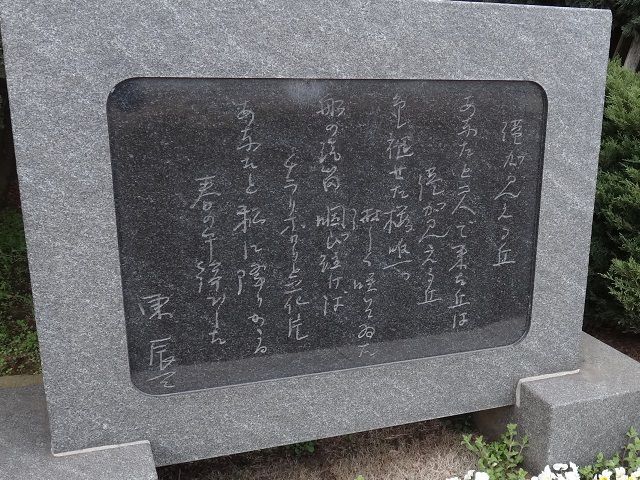 港が見える丘
あなたと二人で来た丘は
港が見える丘
色褪せた桜唯一つ
淋しく咲いていた
船の汽笛咽び泣けば
チラリホラリと花片
あなたと私に降りかかる
春の午後でした
東 辰三